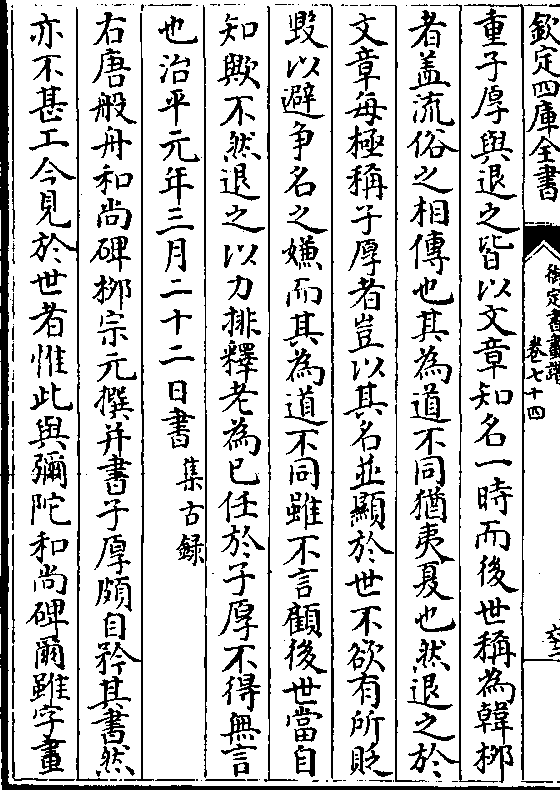 欽定四庫全書
御定書畫譜
卷七十四
重子厚與退之皆以文章知名一時而後世稱為韓栁
者盖流俗之相傳也其為道不同猶夷夏也然退之於
文章每極稱子厚者豈以其名並顯於世不欲有所貶
毁以避争名之嫌而其為道不同雖不言顧後世當自
知歟不然退之以力排釋老為已任於子厚不得無言
也治平元年三月二十二日書 集古錄
右唐般舟和尚碑栁宗元撰并書子厚頗自矜其書然
亦不甚工今見於世者惟此與彌陀和尚碑爾雖字畫